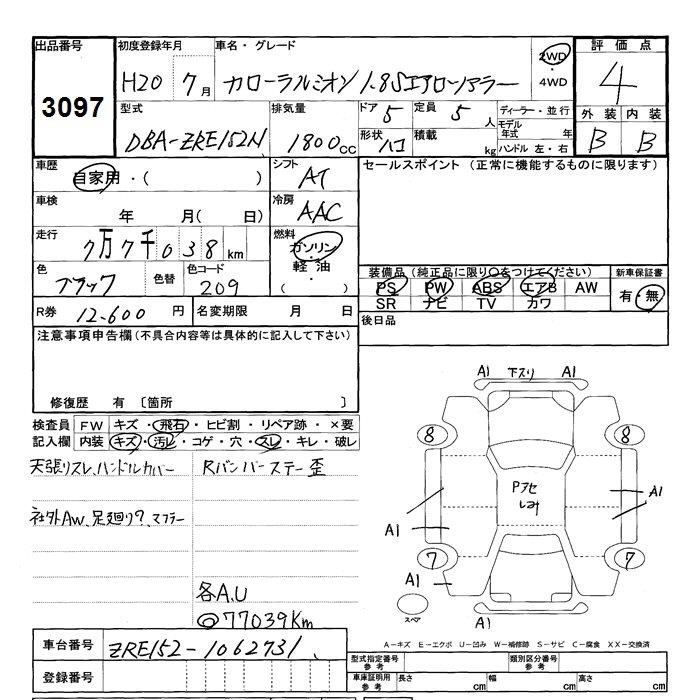 出品番号
3097
初度登録年月
H20 7月
車名・グレード
カローラルミオン 1.8Sエアロツアラー
2WD
・4WD
評価点
4
外装 内装
B B
型式
DBA-ZRE152N
排気量
1800cc
ドア 5
定員 5人
形状 ハコ
積載 kg
ディーラー・並行
モデル年式 年
ハンドル 左・右
車歴
自家用・( )
シフト
AT
セールスポイント (正常に機能するものに限ります)
車検
年 月( 日)
冷房
AAC
走行
7万7千038km
燃料
ガソリン
軽油
( ・ )
色
ブラック
色替
色コード
209
装備品 (純正品に限り○をつけてください)
PS PW ABS エアB AW
SR ナビ TV カワ
新車保証書
有・無
R券 12,600円
名変期限 月 日
後日品
注意事項申告欄(不具合内容等は具体的に記入して下さい)
修復歴 有 〔箇所 〕
検査員
記入欄
FW キズ・飛石・ヒビ割・リペア跡・×要
内装 キズ・汚レ・コゲ・穴・スレ・キレ・破レ
天張りスレ、ハンドルカバー
Rバンパーステー歪
社外AW、足廻り?、マフラー
各A,U
◎77039Km
A1 下スリ A1
8 8
Pアセ
しみ
A1 A1
7 7
A1
スペア
A1
A-キズ E-エクボ U-凹み W-補修跡 S-サビ C-腐食 XX-交換済
車台番号 ZRE152-1062731
登録番号
型式指定番号
参考
類別区分番号
参考
車庫証明用
参考
長さ cm 幅 cm 高さ cm